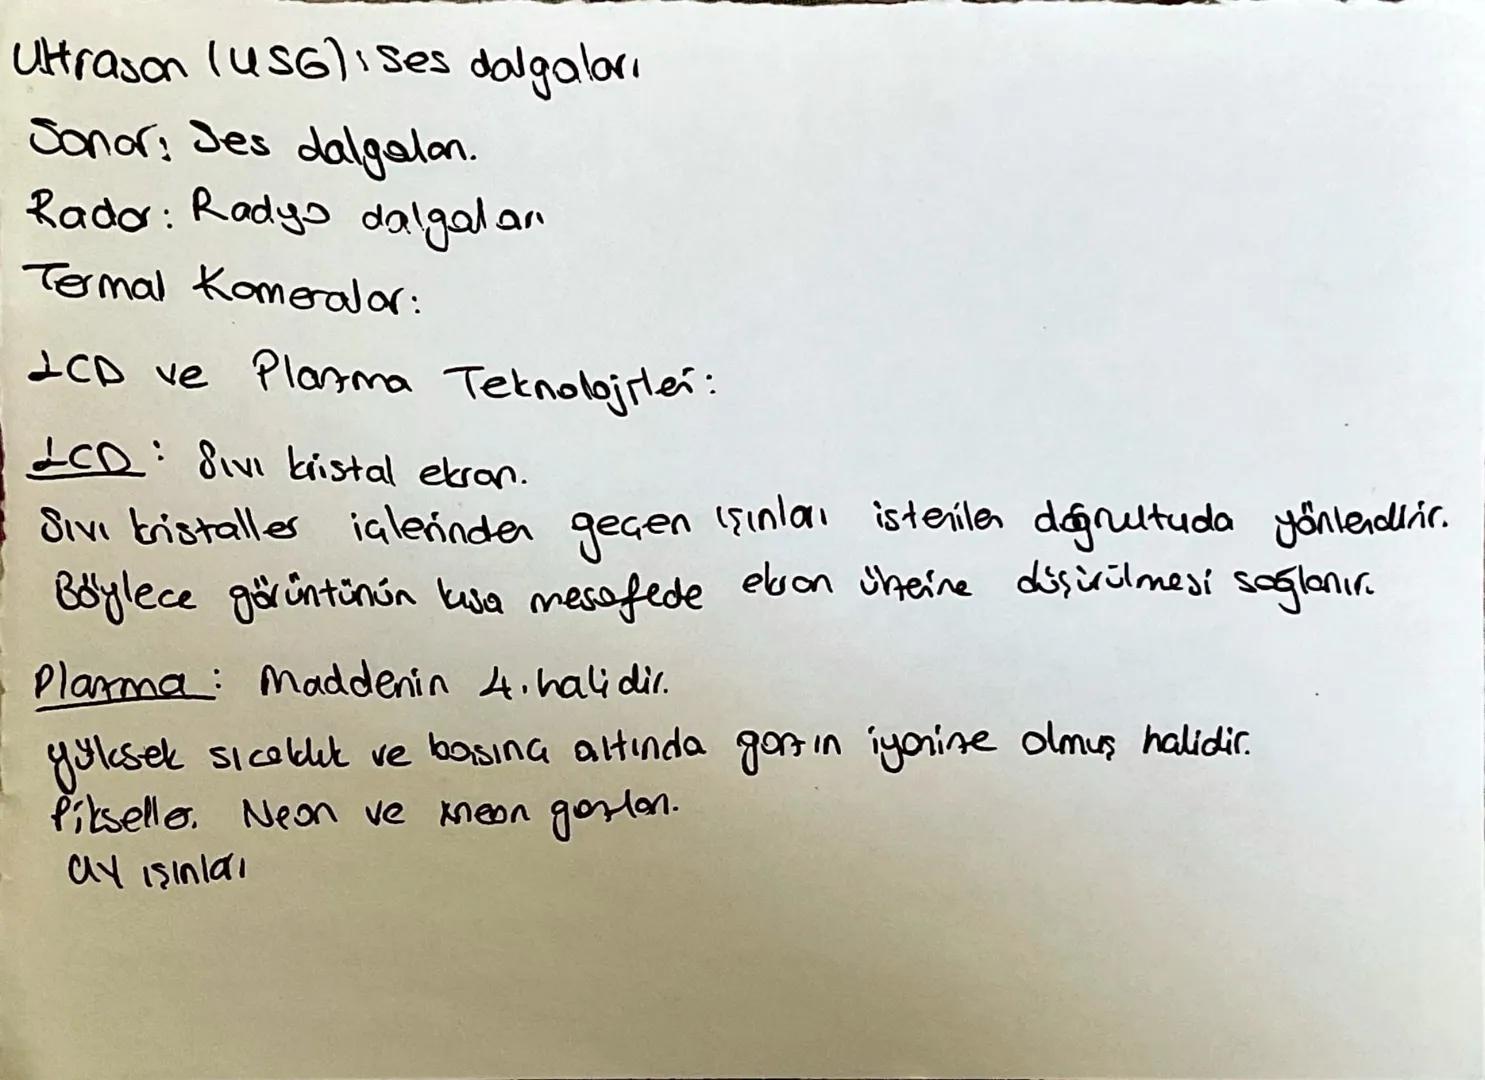 Ultrason (USG): Ses dalgaları
Sonar: Ses dalgaları.
Radar: Radyo dalgaları
Termal Kameralar:
LCD ve Plazma Teknolojileri:
LCD: Sıvı kristal ekran.
Sıvı kristaller içlerinden geçen ışınları istenilen doğrultuda yönlendirir.
Böylece görüntünün kısa mesafede ekran üzerine düşürülmesi sağlanır.
Plazma: Maddenin 4. halidir.
Yüksek sıcaklık ve basınç altında gazın iyonize olmuş halidir.
Pikseller. Neon ve xneon gazları.
UV ışınları